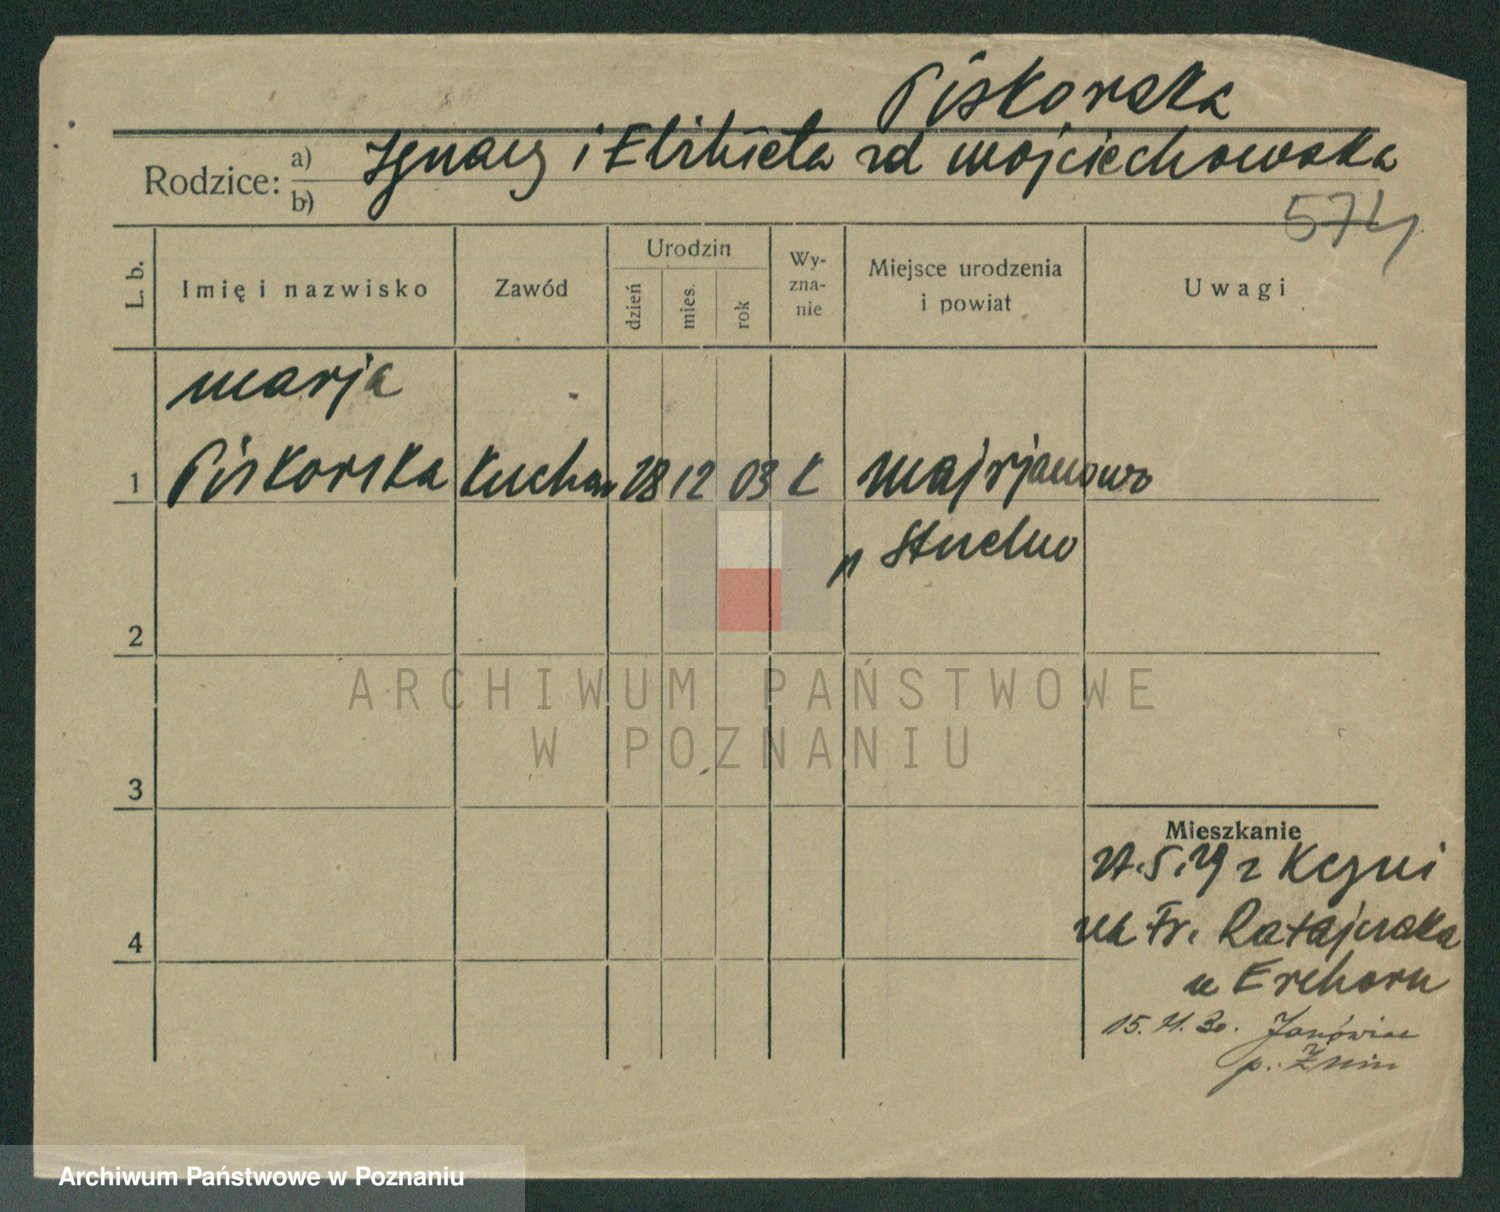 Piskorska
Rodzice: a) b) Ignacy i Elżbieta zd Wojciechowska
574
L. b.
Imię i nazwisko
Zawód
Urodzin
dzień
mies.
rok
Wy-
zna-
nie
Miejsce urodzenia
i powiat
Uwagi
Marja
1 Piskorska Kuchar 28 12 03 K Majrjanowo
p
2
3
4
ARCHIWUM PAŃSTWOWE
W POZNANIU
Mieszkanie
5.29 z Kcyni
Fr. Ratajczaka
u
15. 11. 30. Janówiec
p. Żnin
Archiwum Państwowe w Poznaniu